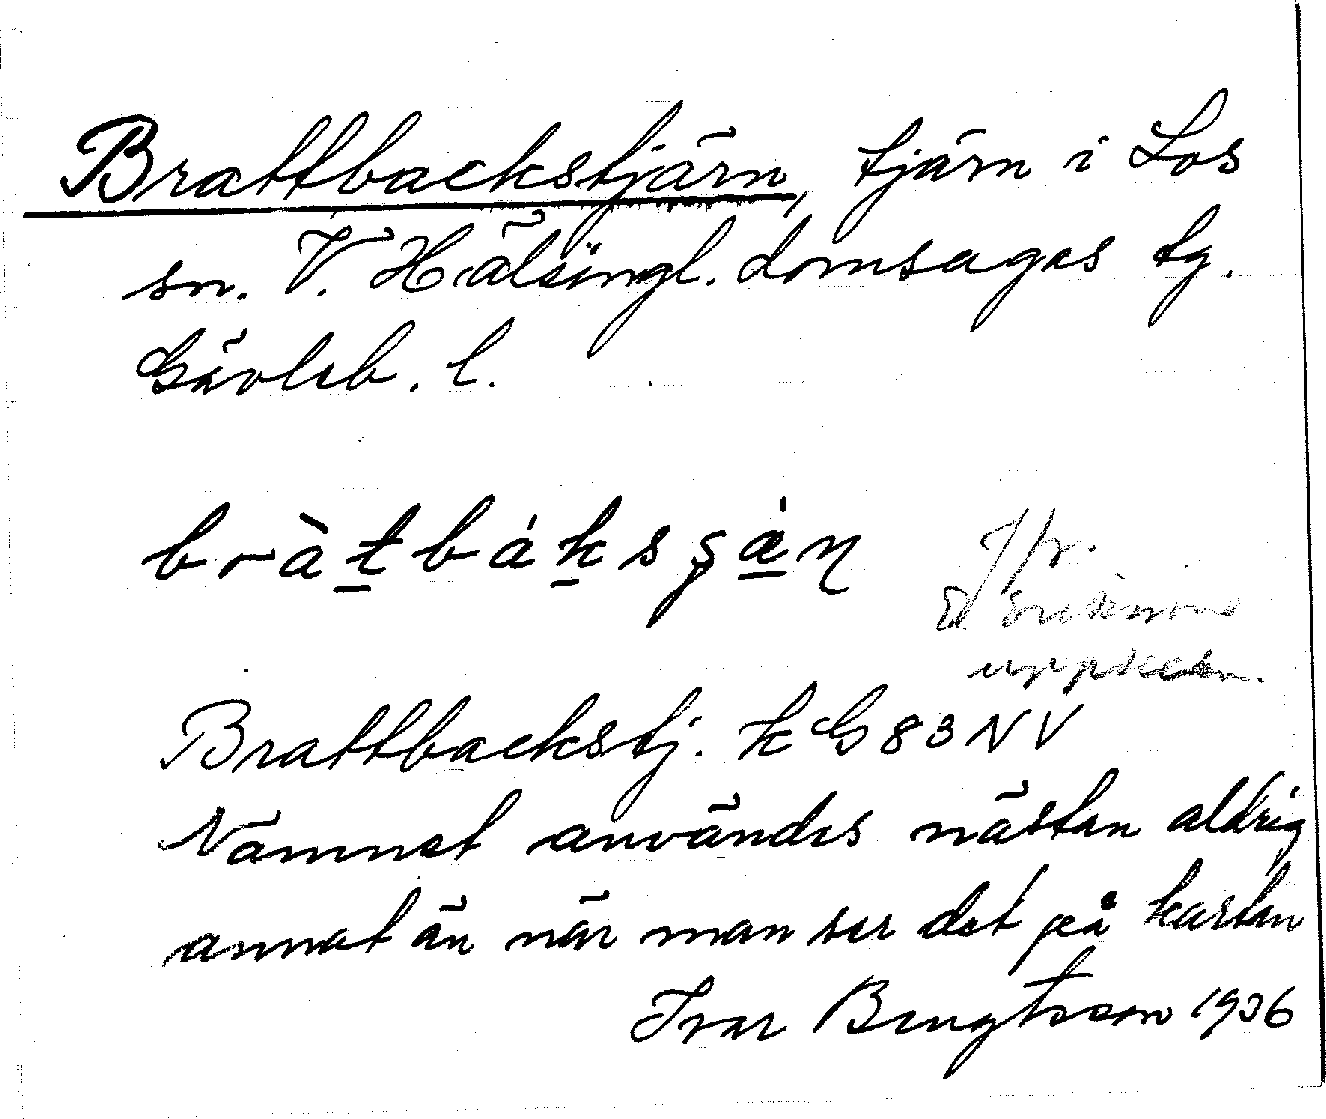 Brattbackstjärn, tjärn i Los
sn. V. Hälsingl. domsagas tg.
Gävleb. l.
bràt̲bák̲sʂæ̲̇ɳ
Jfr.
E Erikssons
uppteckn.
Brattbackstj. k G 83 NV
Namnet användes nästan aldrig
annat än när man ser det på kartan
Ivar Bengtsson 1936